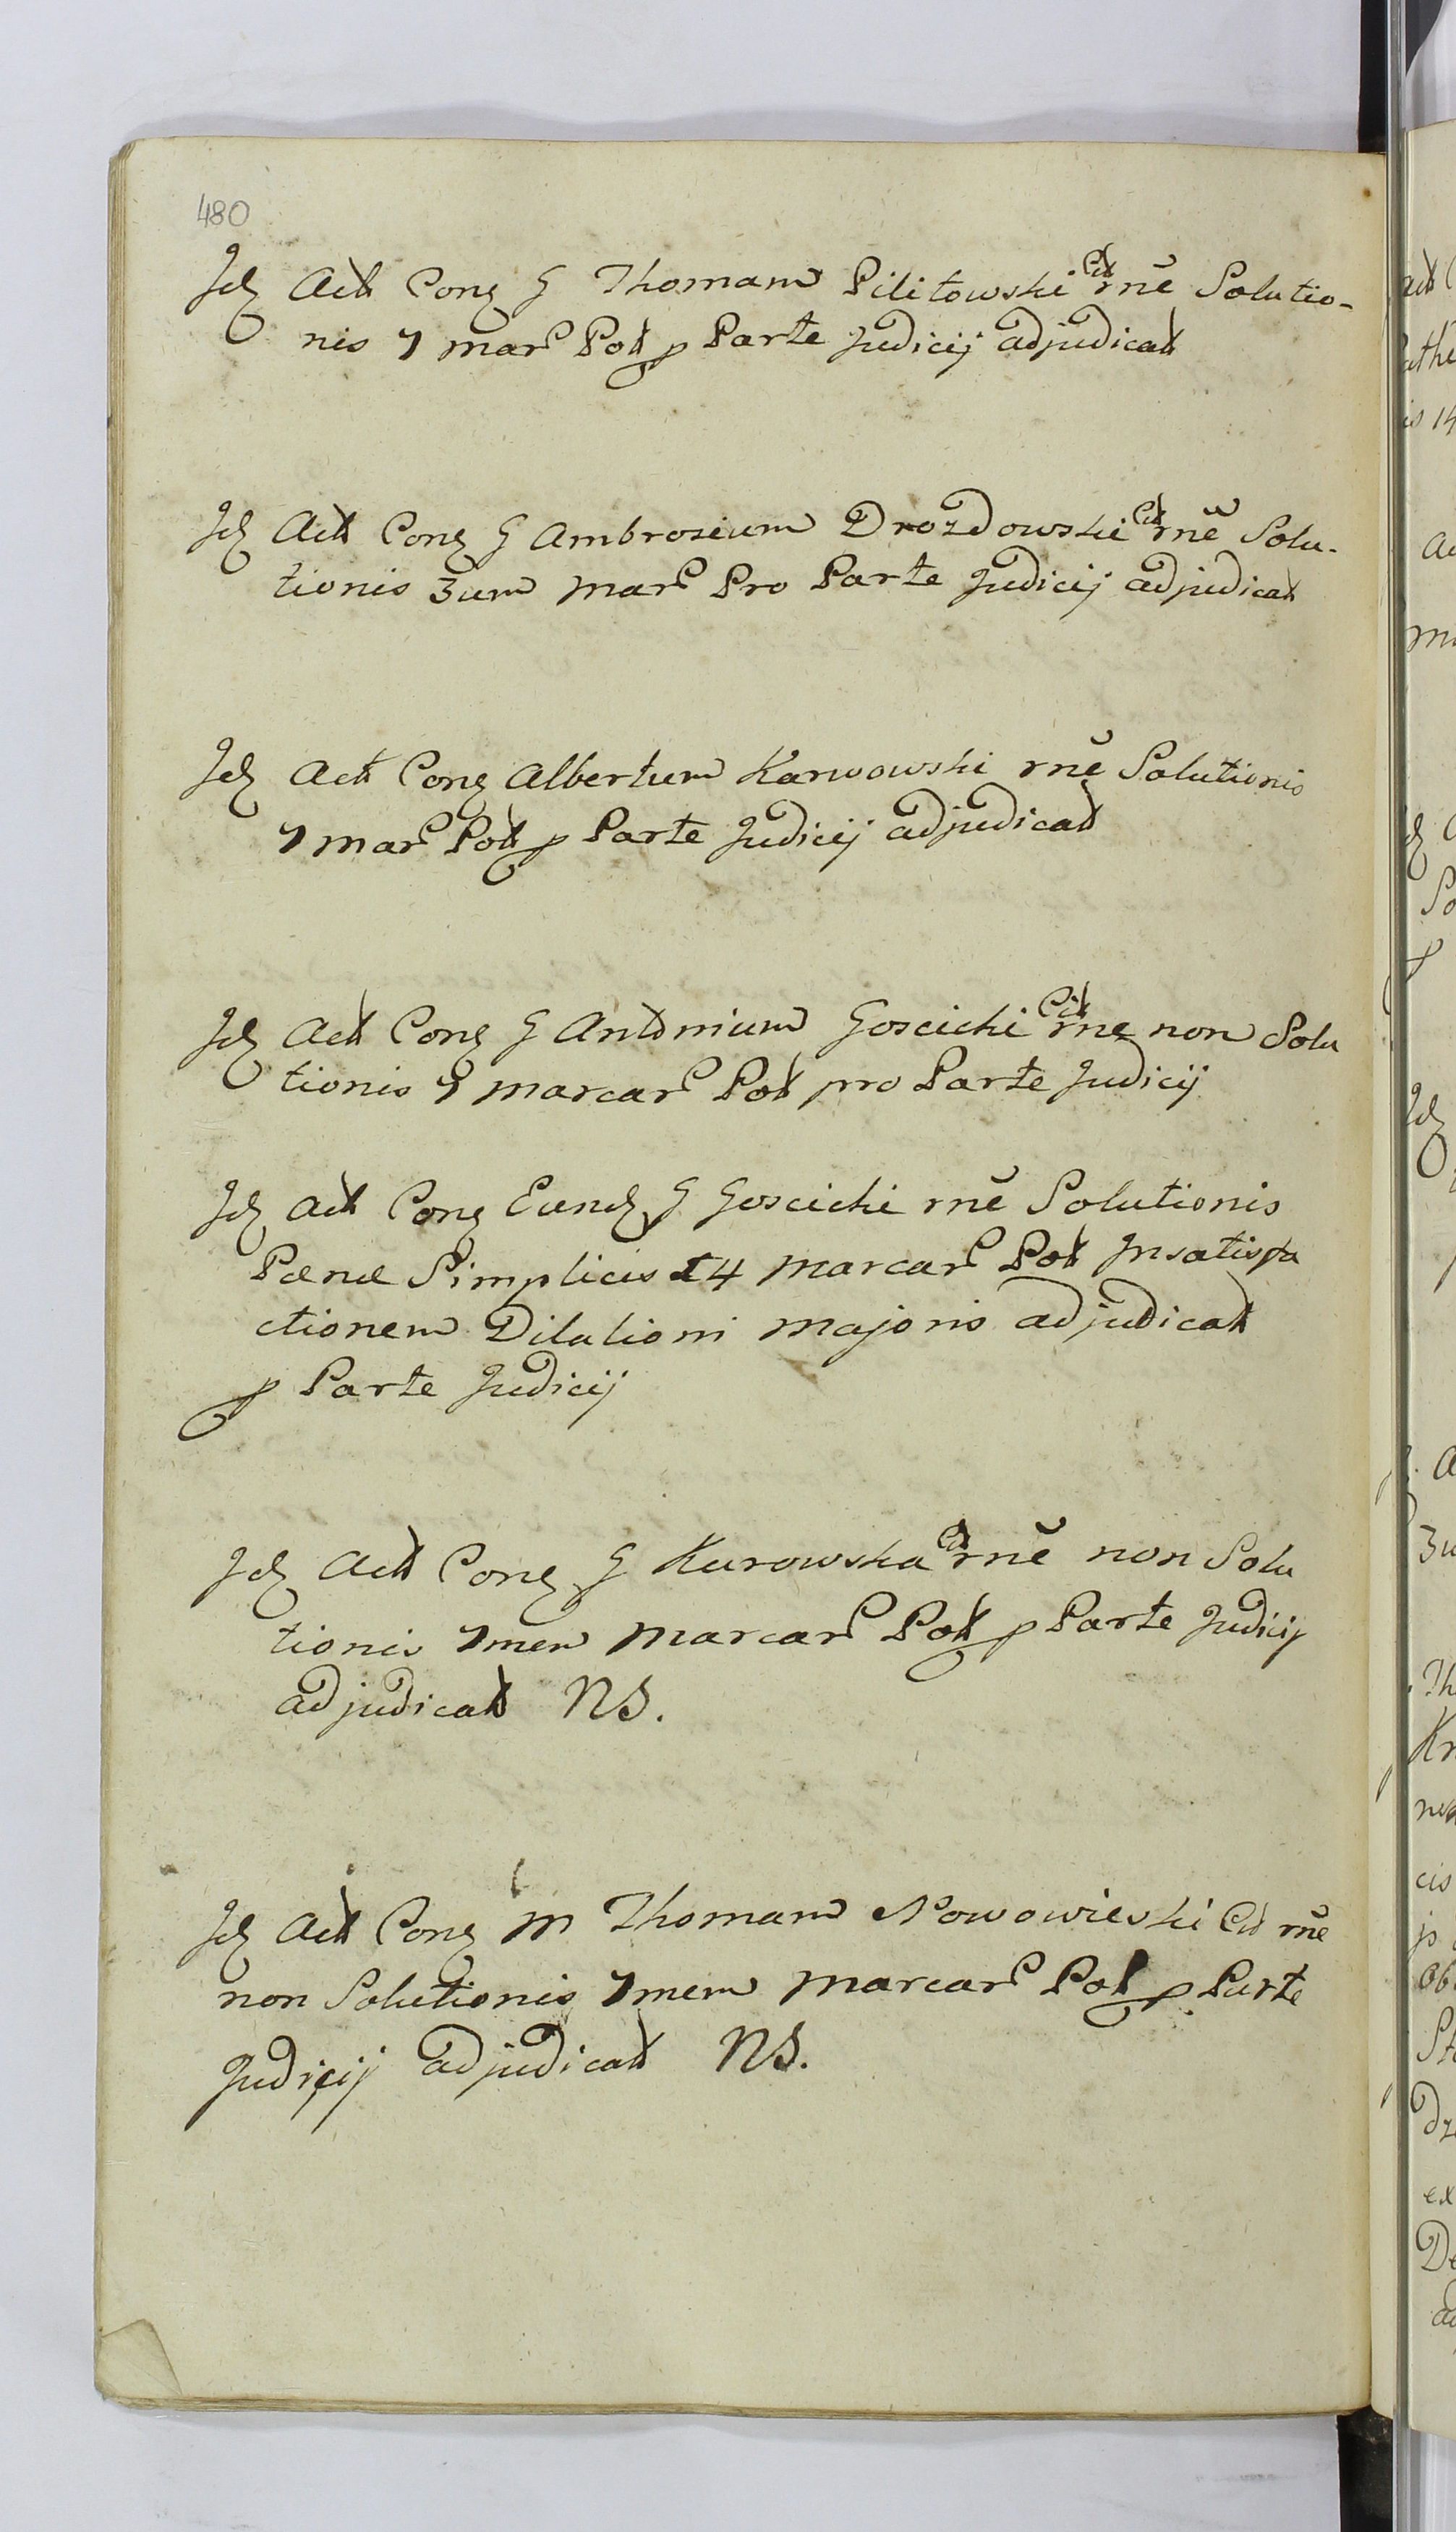 480
Jd Act Cong G Thomam Pilitowski Cit rne Solutio-
nis 7 mar Pol p Parte Judicij adjudicat
Jd Act Cong G Ambrosium Drozdowski Cit rne Solu-
tionis 3um mar Pro Parte Judicij adjudicat
Jd Act Cong Albertum Karwowski rne Solutionis
7 mar Pol p Parte Judicij adjudicat
Jd Act Cong G Antonium Goscicki Cit rne non Solu
tionis 7 marcar Pol pro Parte Judicij
Jd Act Cong Eund G Goscicki rne Solutionis
Pænæ Simplicis 14 marcar Pol Jnsatisfa
ctionem Dilationi majoris adjudicat
p Parte Judicij
Jd Act Cong G Kurowska Cit rne non Solu
tionis 7mem marcar Pol p Parte Judicij
adjudicat NS.
Jd Act Cong M Thomam Nowowieski Cit rne
non Solutionis 7mem marcar Pol p Parte
Judicij adjudicat NS.